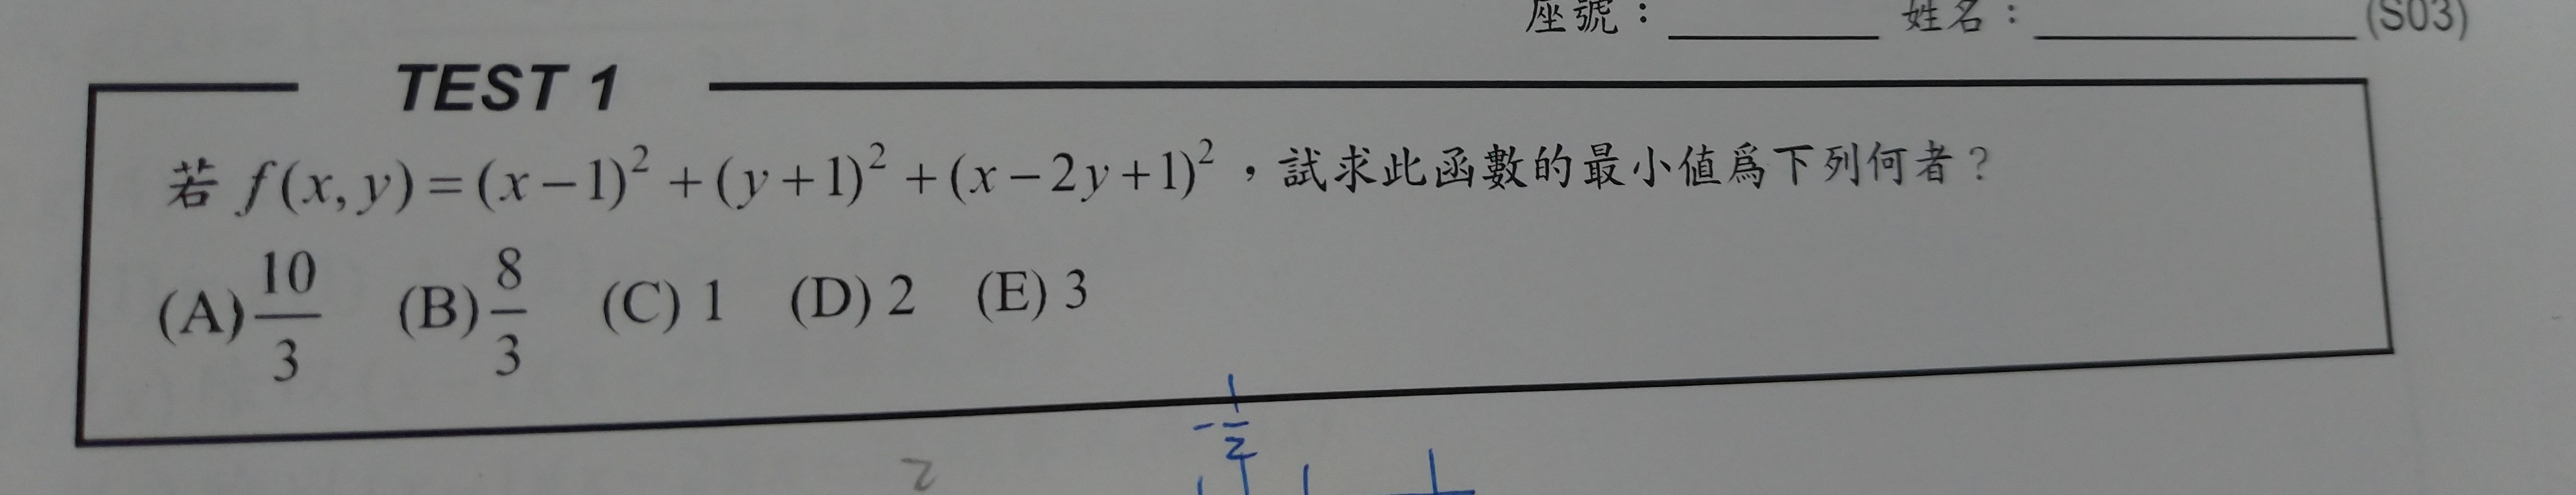 座號： 姓名： (S03)
TEST 1
若 f(x, y) = (x−1)² + (y+1)² + (x−2y+1)²，試求此函數的最小値爲下列何者？
(A) 10/3 (B) 8/3 (C) 1 (D) 2 (E) 3
−1/2
2